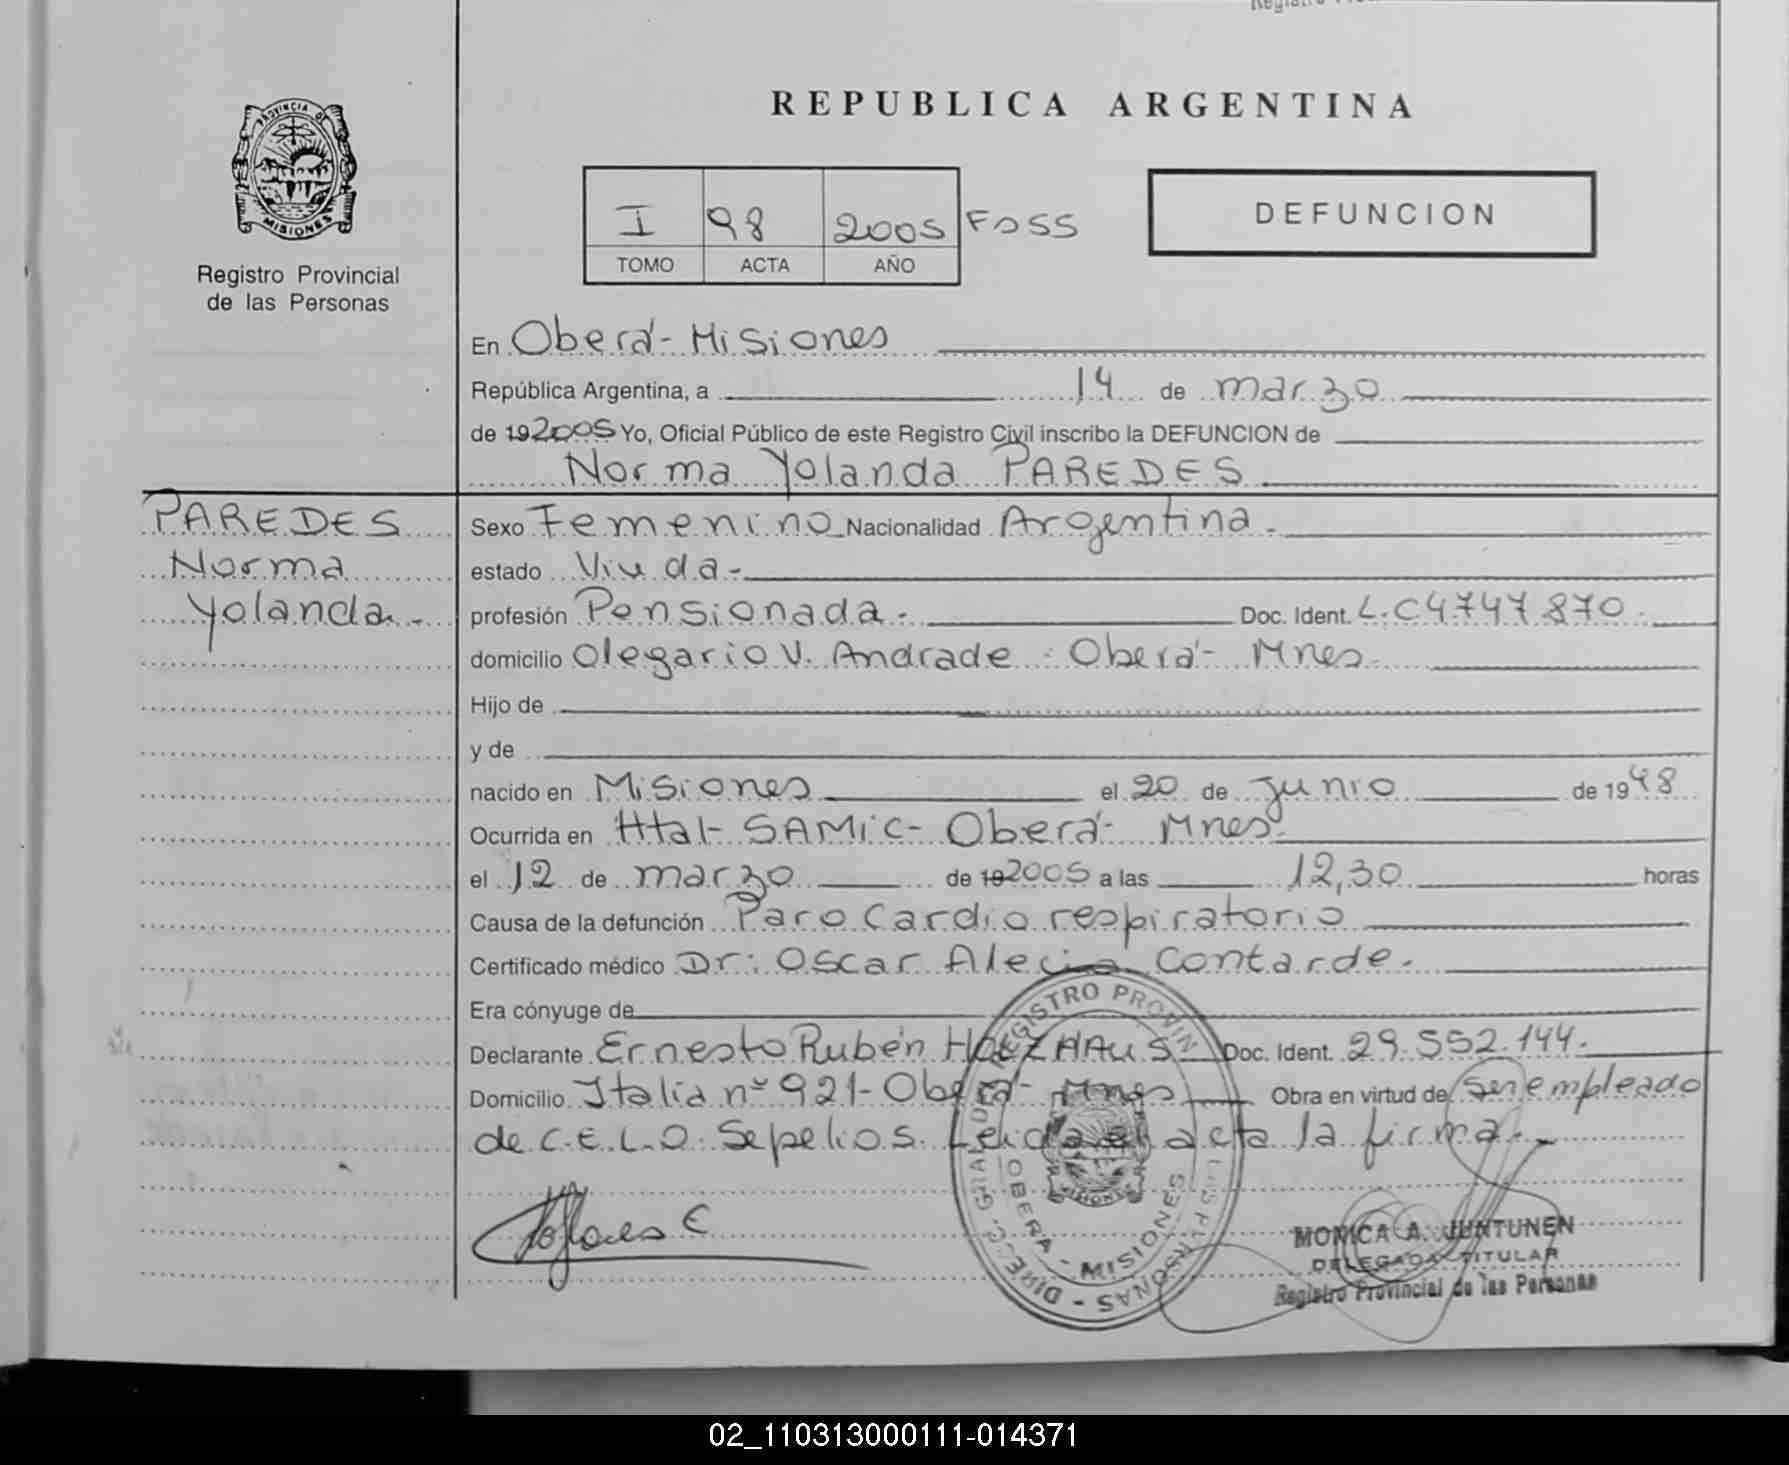 REPUBLICA ARGENTINA
PROVINCIA DE
MISIONES
Registro Provincial
de las Personas
I 98 2005 Fº 55
TOMO ACTA AÑO
DEFUNCION
En Oberá - Misiones
República Argentina, a 14 de marzo
de 19 2005 Yo, Oficial Público de este Registro Civil inscribo la DEFUNCION de
Norma Yolanda PAREDES
PAREDES
Norma
Yolanda.-
Sexo Femenino Nacionalidad Argentina.
estado Viuda-
profesión Pensionada. Doc. Ident. L.C 4747870.
domicilio Olegario V. Andrade. Oberá- Mnes.
Hijo de
y de
nacido en Misiones el 20 de Junio de 1948
Ocurrida en Htal- SAMIC- Oberá- Mnes.
el 12 de marzo de 19 2005 a las 12,30 horas
Causa de la defunción Paro Cardio respiratorio
Certificado médico Dr: Oscar Contarde.
Era cónyuge de
Declarante Ernesto Rubén Doc. Ident. 29.552.144.
Domicilio Italia nº 921- Oberá- Mnes Obra en virtud de Ser empleado
de C.E.L.O. Sepelios. Leida el acta la firma.-
DIREC. GRAL. DEL REGISTRO PROVIN. LAS PERSONAS
OBERA - MISIONES
MISIONES
MONICA A. JUNTUNEN
DELEGADA TITULAR
Registro Provincial de las Personas
02_110313000111-014371